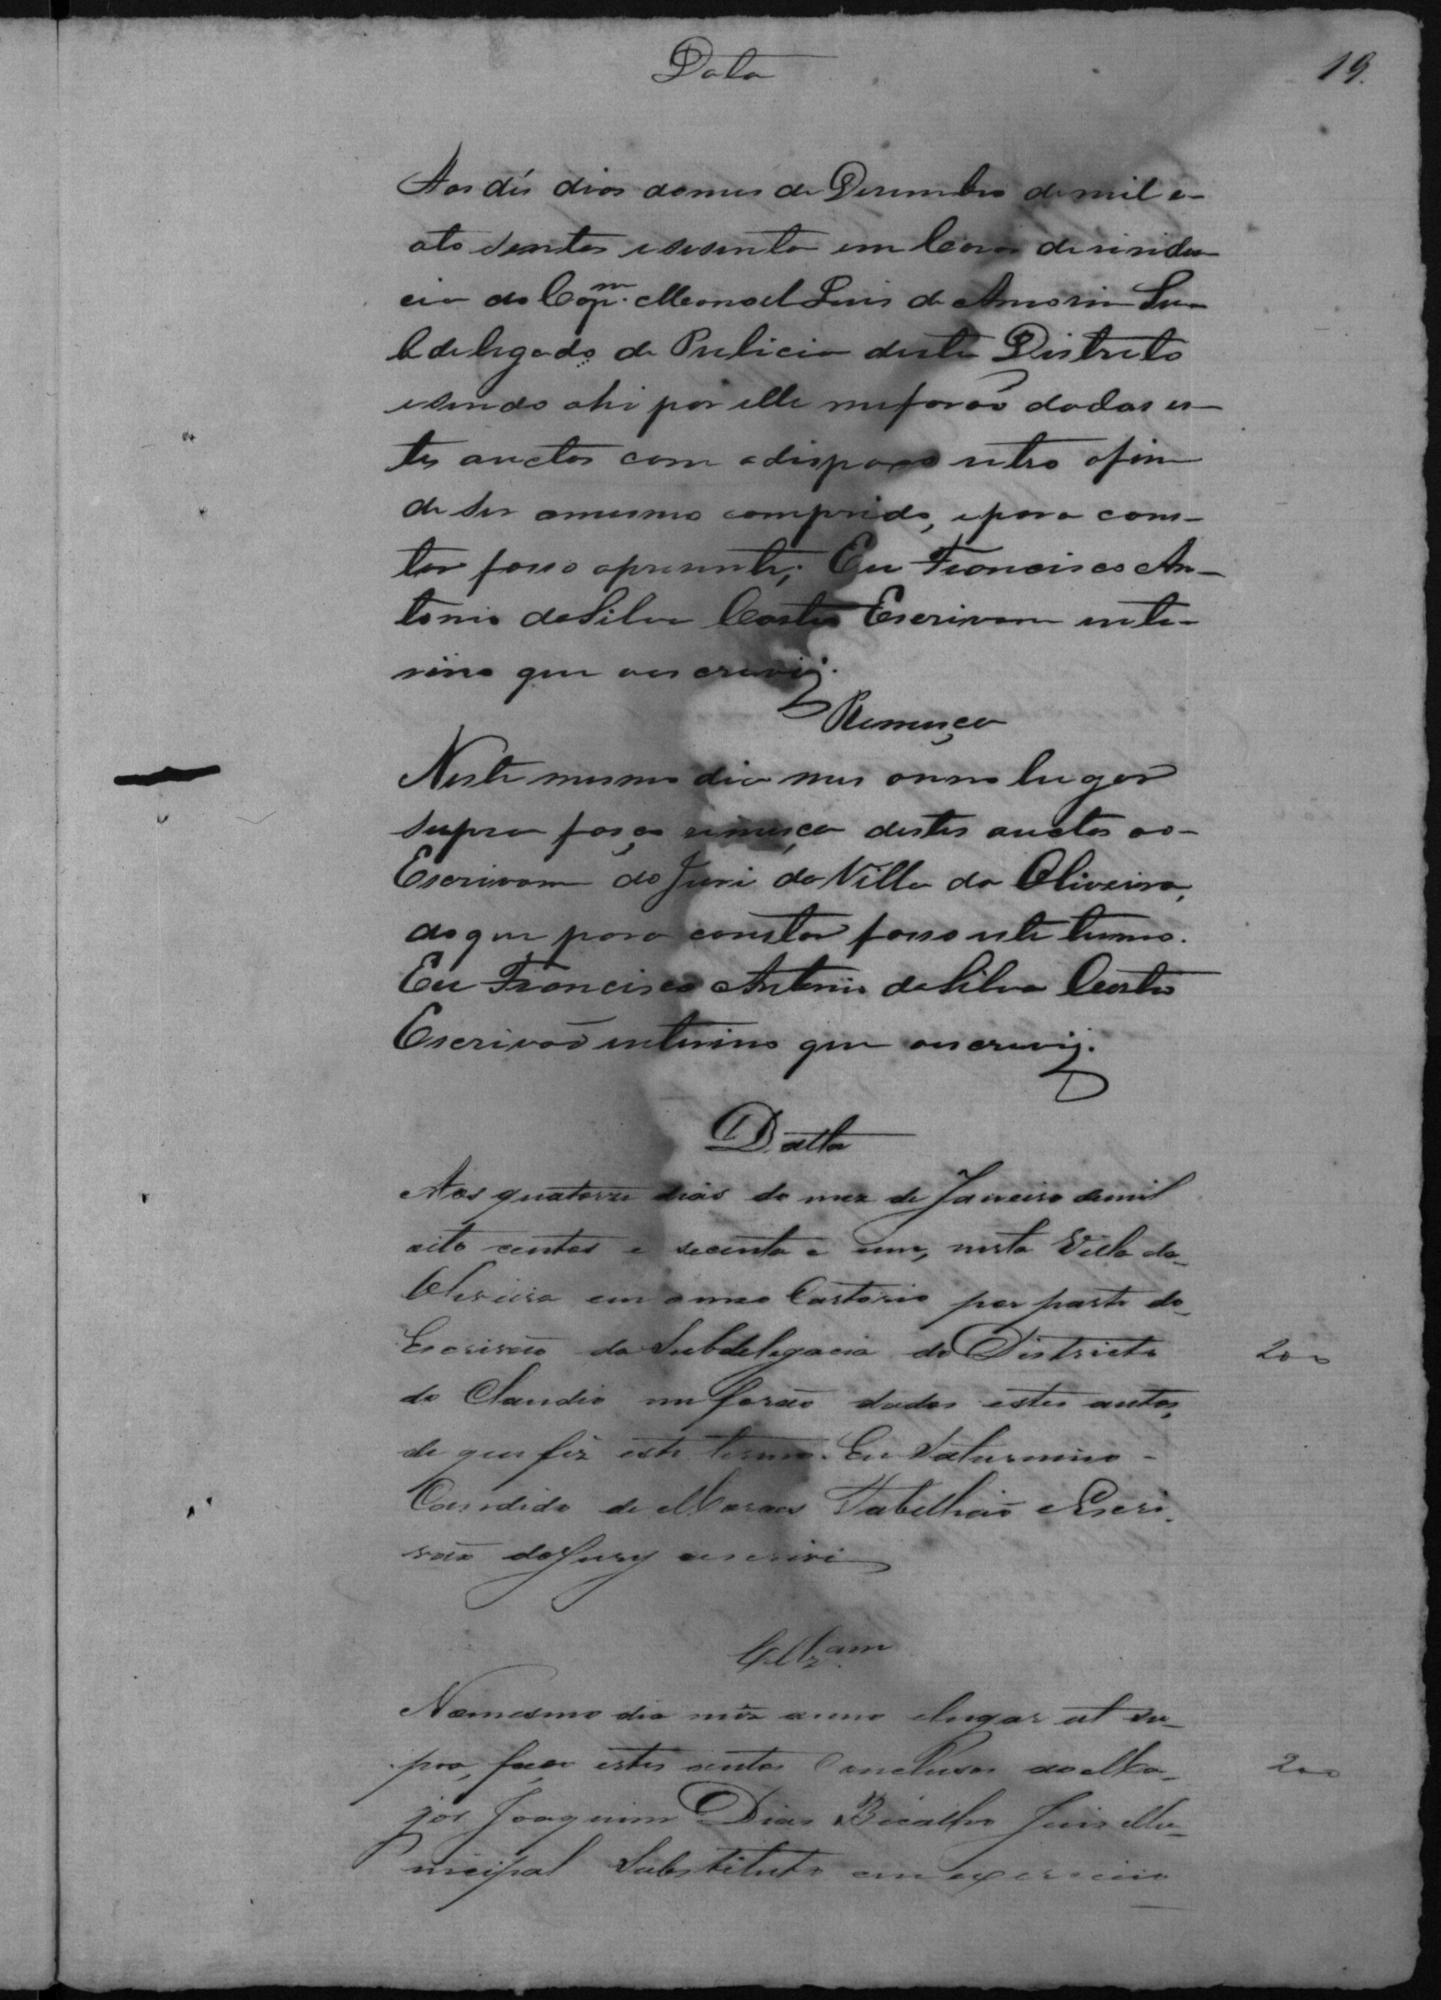 Data
19.
Aos dés dias domes de Desembro de mil e
oto sentos esesenta em Casa de residen
cia do Cap.m Manoel Luis de Amorim Su
bdelegado de Pulicia deste Distreto
esendo ahi por elle meforaõ dadas es
tes auctos com odispaxo retro afim
de ser omesmo comprido, epara cons-
tar fasso apresente; Eu Francisco An-
tonio daSilva Castro Escrivam inte-
rino que oescrevij.
Remeça
Neste mesmo dia mes anno lugar
supra faço remeça destes auctos ao
Escrivam do Juri da Villa da Oliveira,
doque para constar fasso este termo.
Eu Francisco Antonio daSilva Castro
Escrivaõ interino que oescrevij.
Datta
Aos quatorze dias do mez de Janeiro demil
oito centos e secenta e um, nesta Villa da
Oliveira em o meo Cartorio por parte do
Escrivão da Subdelegacia do Districto
200
do Claudio me forão dados estes autos,
de que fiz este termo. Eu Saturnino
Candido de Moraes Tabellião eEscri
vão doJury oescrevi
Cllz.am
Nomesmo dia mez anno elugar ut su
pra, faço estes autos Conclusos aoMa
200
jor Joaquim Dias Bicalho Juis Mu
nicipal Substituto em exercicio